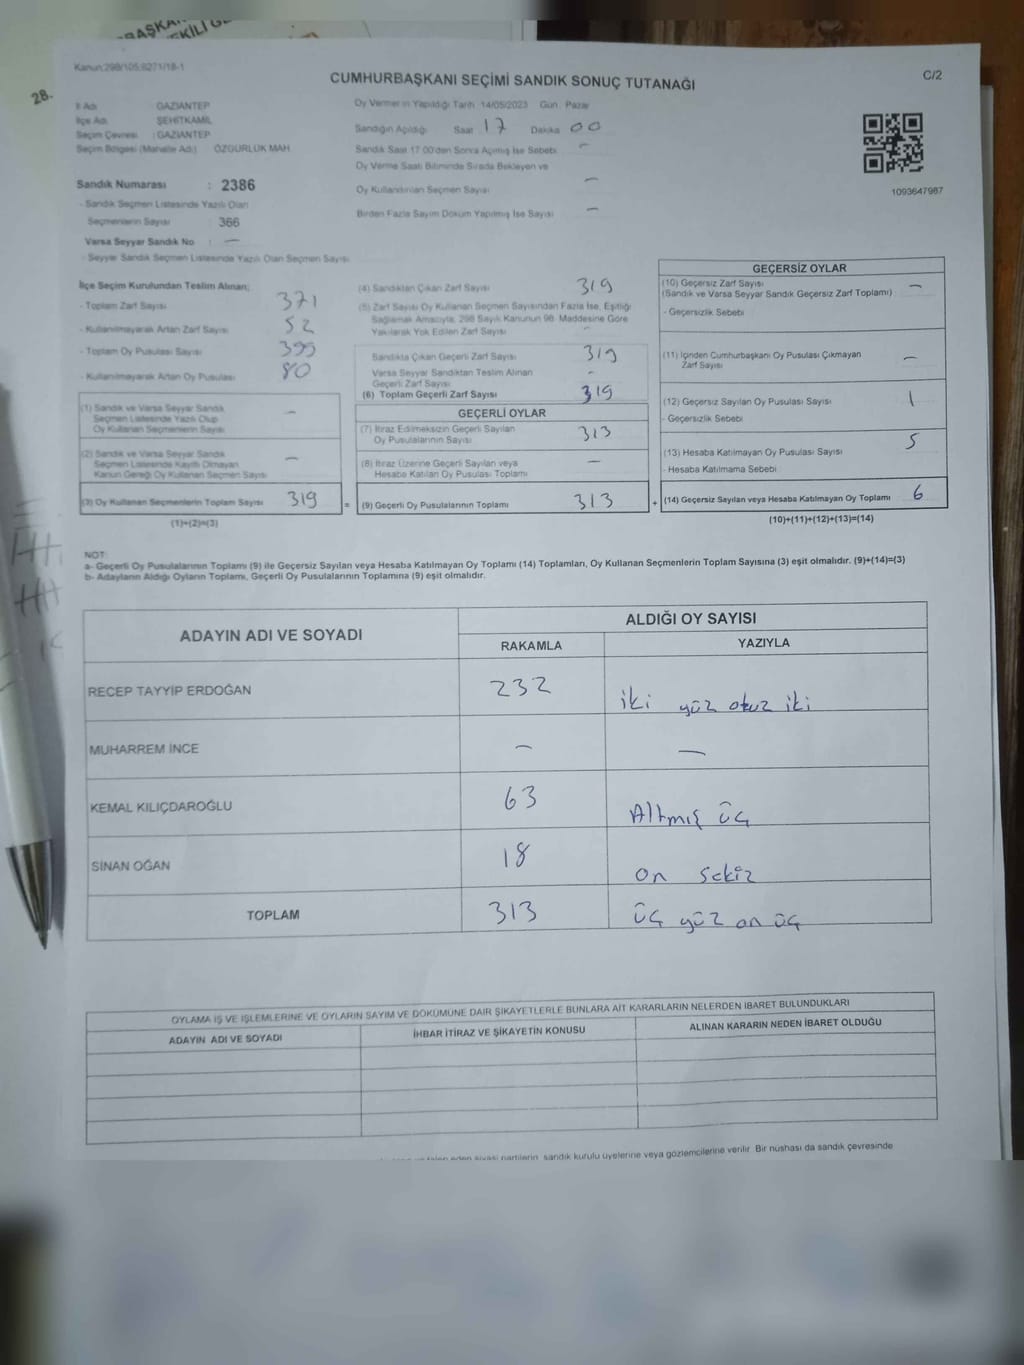 28.
Kanun:298/105;6271/18-1
CUMHURBAŞKANI SEÇİMİ SANDIK SONUÇ TUTANAĞI
C/2
İl Adı GAZİANTEP
İlçe Adı ŞEHİTKAMİL
Seçim Çevresi : GAZİANTEP
Seçim Bölgesi (Mahalle Adı) ÖZGÜRLÜK MAH
Sandık Numarası : 2386
- Sandık Seçmen Listesinde Yazılı Olan
Seçmenlerin Sayısı 366
Varsa Seyyar Sandık No : —
- Seyyar Sandık Seçmen Listesinde Yazılı Olan Seçmen Sayısı
Oy Vermenin Yapıldığı Tarih 14/05/2023 Gün Pazar
Sandığın Açıldığı Saat 17 Dakika 00
Sandık Saat 17.00'den Sonra Açılmış İse Sebebi —
Oy Verme Saati Bitiminde Sırada Bekleyen ve
Oy Kullandırılan Seçmen Sayısı —
Birden Fazla Sayım Döküm Yapılmış İse Sayısı —
1093647987
İlçe Seçim Kurulundan Teslim Alınan;
- Toplam Zarf Sayısı 371
- Kullanılmayarak Artan Zarf Sayısı 52
- Toplam Oy Pusulası Sayısı 399
- Kullanılmayarak Artan Oy Pusulası 80
(1) Sandık ve Varsa Seyyar Sandık
Seçmen Listesinde Yazılı Olup
Oy Kullanan Seçmenlerin Sayısı —
(2) Sandık ve Varsa Seyyar Sandık
Seçmen Listesinde Kayıtlı Olmayan
Kanun Gereği Oy Kullanan Seçmen Sayısı —
(3) Oy Kullanan Seçmenlerin Toplam Sayısı 319 =
(1)+(2)=(3)
(4) Sandıktan Çıkan Zarf Sayısı 319
(5) Zarf Sayısı Oy Kullanan Seçmen Sayısından Fazla İse, Eşitliği
Sağlamak Amacıyla, 298 Sayılı Kanunun 98. Maddesine Göre
Yakılarak Yok Edilen Zarf Sayısı -
Sandıkta Çıkan Geçerli Zarf Sayısı 319
Varsa Seyyar Sandıktan Teslim Alınan
Geçerli Zarf Sayısı -
(6) Toplam Geçerli Zarf Sayısı 319
GEÇERLİ OYLAR
(7) İtiraz Edilmeksizin Geçerli Sayılan
Oy Pusulalarının Sayısı 313
(8) İtiraz Üzerine Geçerli Sayılan veya
Hesaba Katılan Oy Pusulası Toplamı —
(9) Geçerli Oy Pusulalarının Toplamı 313 +
GEÇERSİZ OYLAR
(10) Geçersiz Zarf Sayısı
(Sandık ve Varsa Seyyar Sandık Geçersiz Zarf Toplamı) —
- Geçersizlik Sebebi
(11) İçinden Cumhurbaşkanı Oy Pusulası Çıkmayan
Zarf Sayısı —
(12) Geçersiz Sayılan Oy Pusulası Sayısı 1
- Geçersizlik Sebebi
(13) Hesaba Katılmayan Oy Pusulası Sayısı 5
- Hesaba Katılmama Sebebi
(14) Geçersiz Sayılan veya Hesaba Katılmayan Oy Toplamı 6
(10)+(11)+(12)+(13)=(14)
NOT:
a- Geçerli Oy Pusulalarının Toplamı (9) ile Geçersiz Sayılan veya Hesaba Katılmayan Oy Toplamı (14) Toplamları, Oy Kullanan Seçmenlerin Toplam Sayısına (3) eşit olmalıdır. (9)+(14)=(3)
b- Adayların Aldığı Oyların Toplamı, Geçerli Oy Pusulalarının Toplamına (9) eşit olmalıdır.
ADAYIN ADI VE SOYADI
ALDIĞI OY SAYISI
RAKAMLA YAZIYLA
RECEP TAYYİP ERDOĞAN 232 iki yüz otuz iki
MUHARREM İNCE — —
KEMAL KILIÇDAROĞLU 63 Altmış üç
SİNAN OĞAN 18 on sekiz
TOPLAM 313 üç yüz on üç
OYLAMA İŞ VE İŞLEMLERİNE VE OYLARIN SAYIM VE DÖKÜMÜNE DAİR ŞİKAYETLERLE BUNLARA AİT KARARLARIN NELERDEN İBARET BULUNDUKLARI
ADAYIN ADI VE SOYADI İHBAR İTİRAZ VE ŞİKAYETİN KONUSU ALINAN KARARIN NEDEN İBARET OLDUĞU
eden siyasi partilerin, sandık kurulu üyelerine veya gözlemcilerine verilir. Bir nüshası da sandık çevresinde